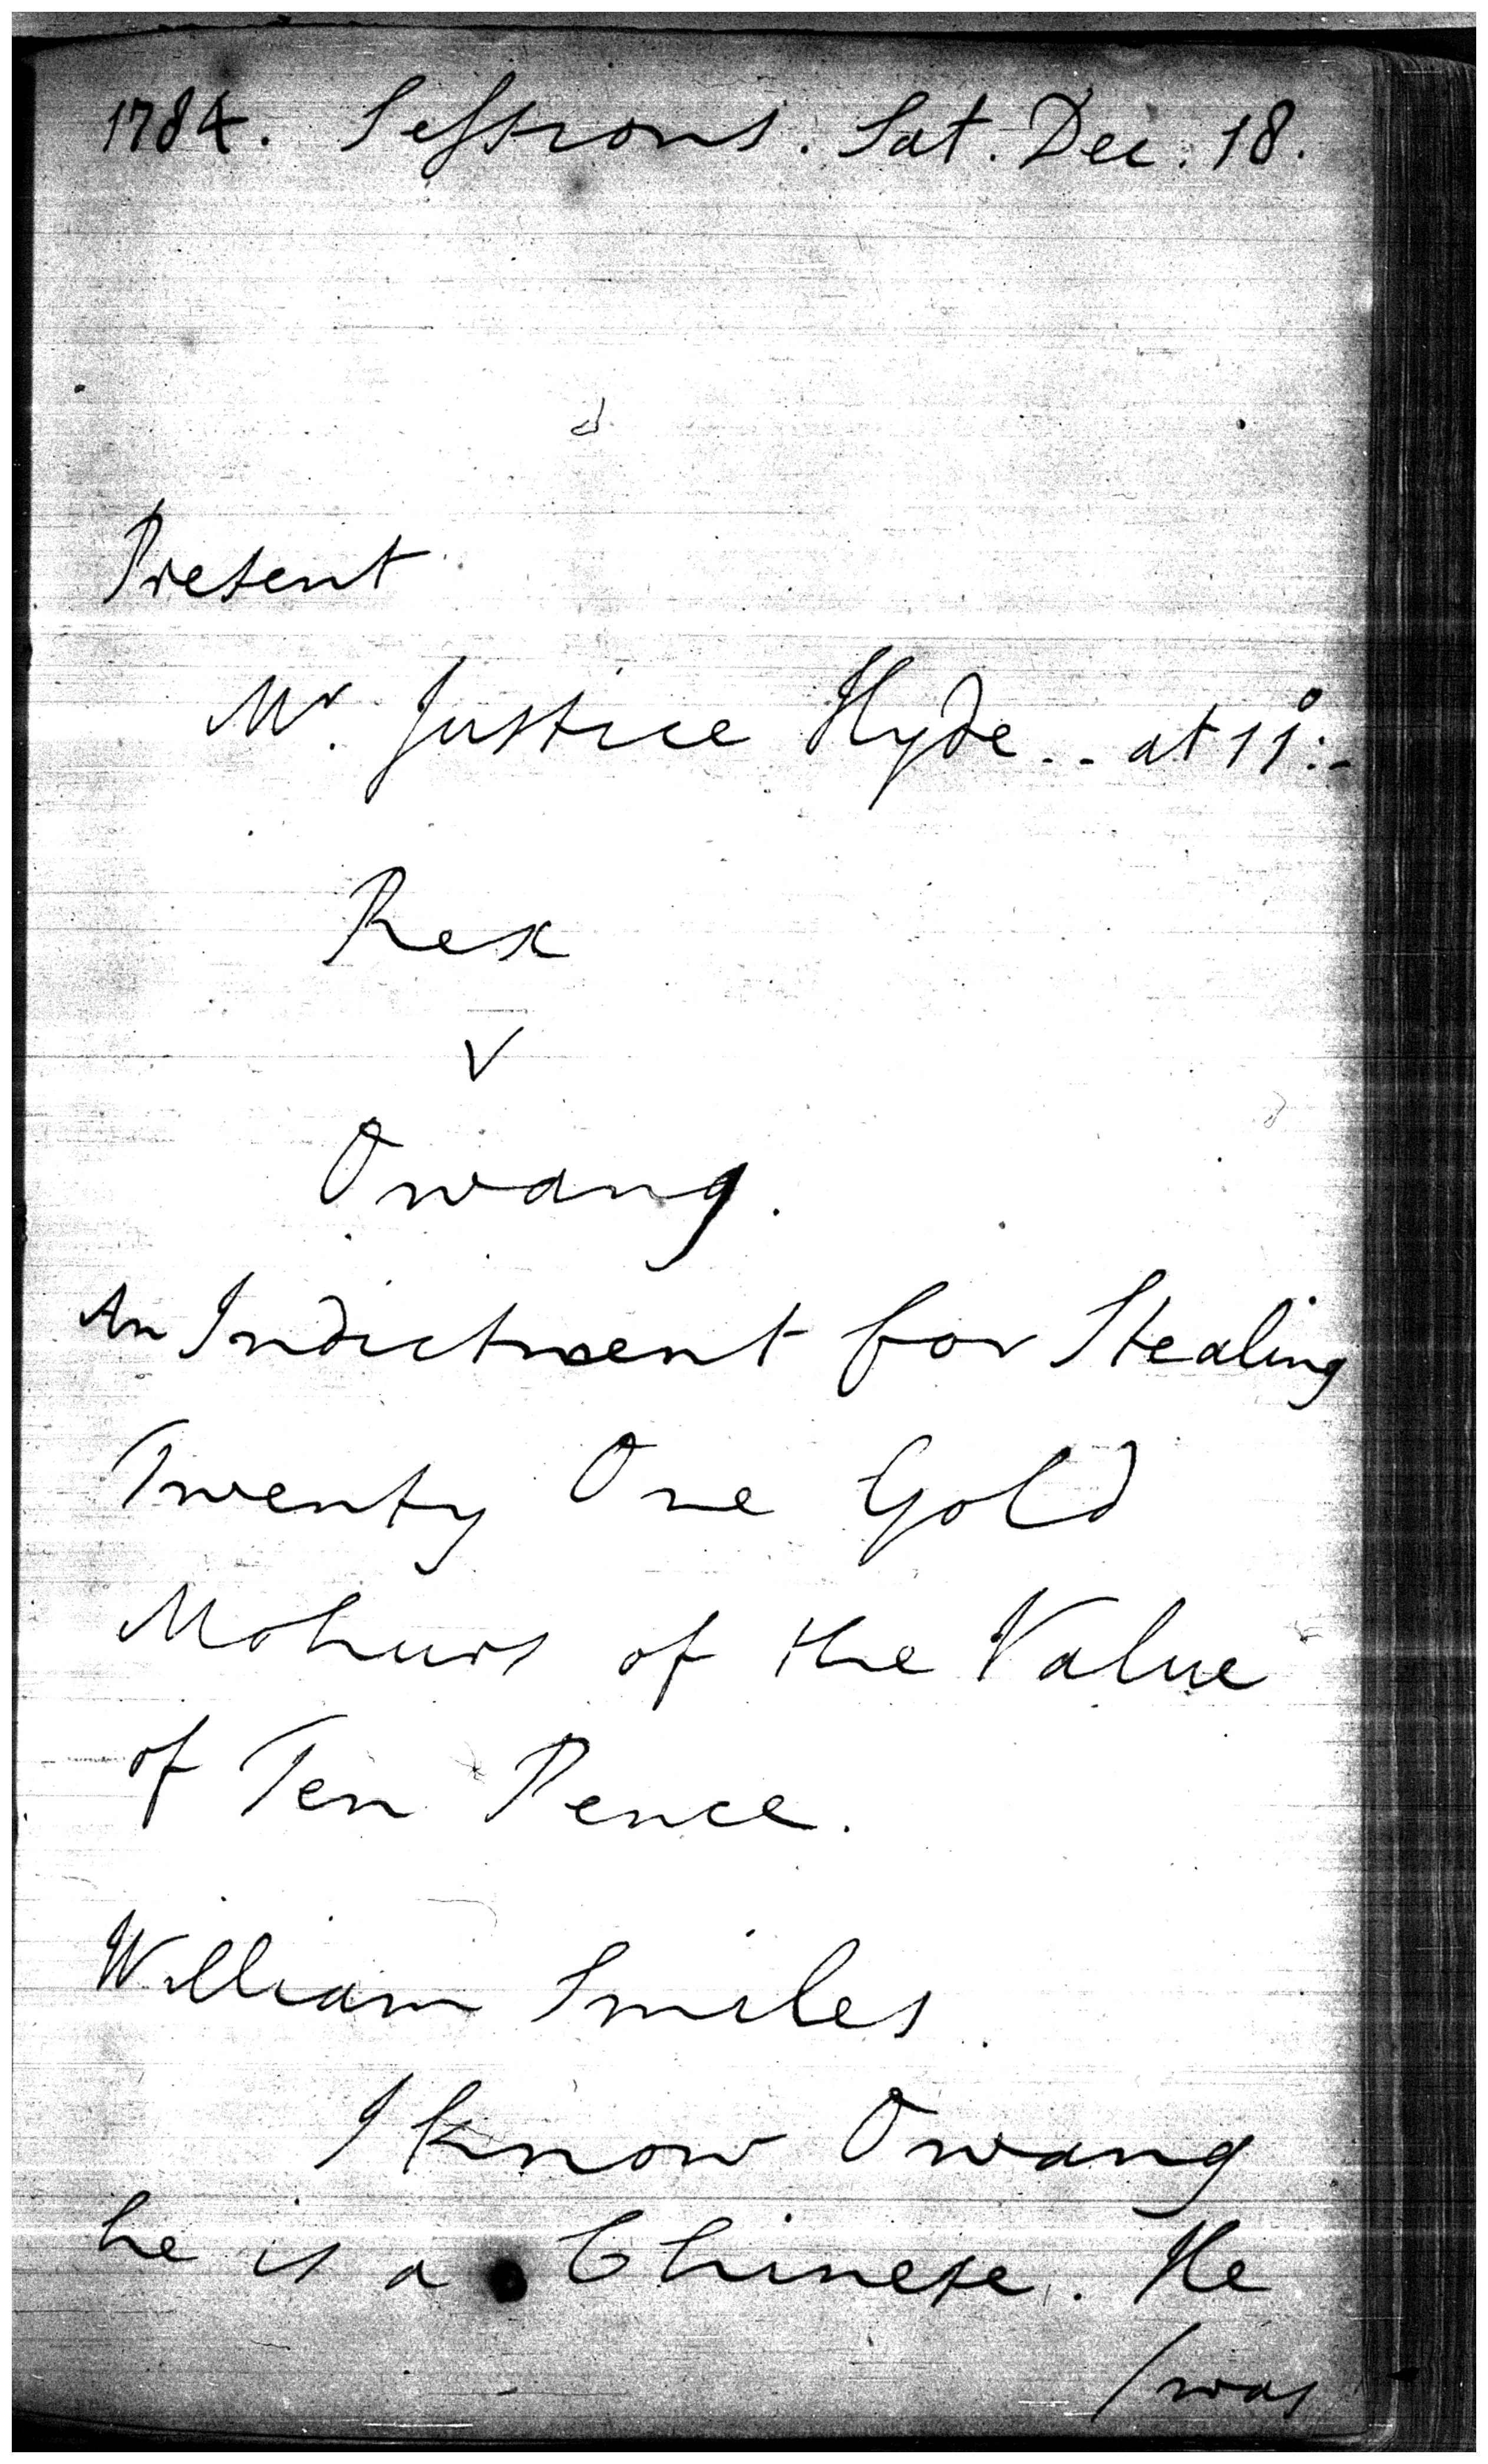 1784. Sessions. Sat. Dec. 18.
Present
Mr. Justice Hyde.. at 11:-
Rex
v
Owang.
An Indictment for Stealing
Twenty One Gold
Mohurs of the Value
of Ten Pence.
William Smiles.
I know Owang
he is a Chinese. He
/was